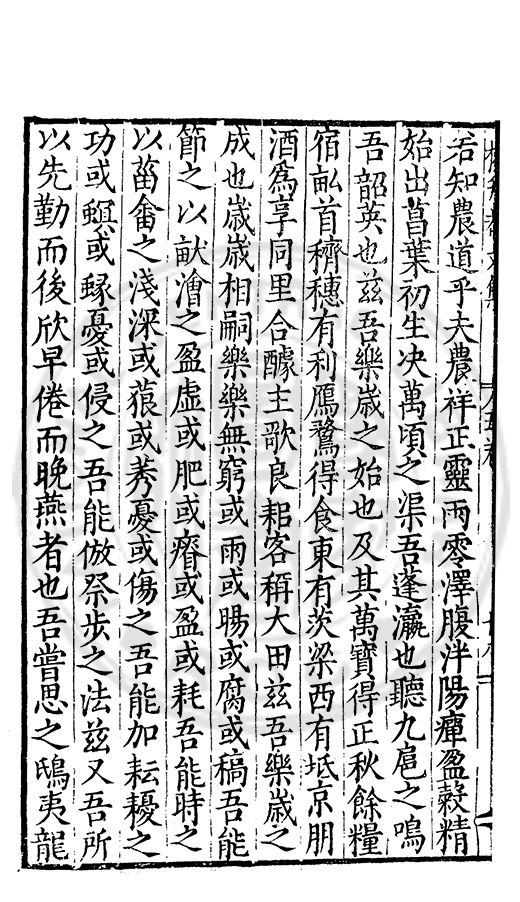 若知農道乎夫農祥正靈雨零澤腹泮陽癉盈穀精
始出菖葉初生决萬頃之渠吾蓬瀛也聽九扈之鳴
吾韶英也兹吾樂歳之始也及其萬寶得正秋餘糧
宿畆首穧穗有利鴈鶩得食東有茨梁西有坻京朋
酒爲享同里合醵主歌良耜客稱大田兹吾樂歳之
成也歳歳相嗣樂樂無窮或雨或暘或腐或稿吾能
節之以畎澮之盈虛或肥或瘠或盈或耗吾能時之
以菑畬之淺深或蓈或莠憂或傷之吾能加耘耰之
功或螟或蝝憂或侵之吾能倣祭步之法兹又吾所
以先勤而後欣早倦而晚燕者也吾嘗思之鴟夷龍